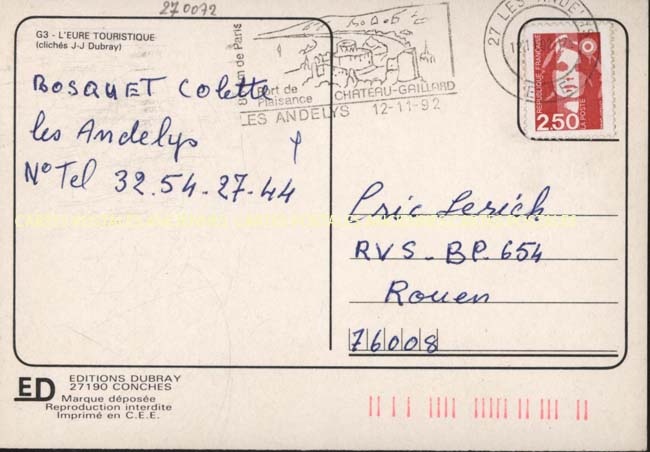 270072
G3 - L'EURE TOURISTIQUE
(clichés J-J Dubray)
BOSQUET Colette
les Andelys
N° Tel 32.54.27.44
de Paris
Port de
Plaisance
CHATEAU-GAILLARD
LES ANDELYS 12-11-92
27 LES ANDELYS
REPUBLIQUE FRANÇAISE
LA POSTE
2.50
Eric Lerich
RVS - BP. 654
Rouen
76008
ED
EDITIONS DUBRAY
27190 CONCHES
Marque déposée
Reproduction interdite
Imprimé en C.E.E.